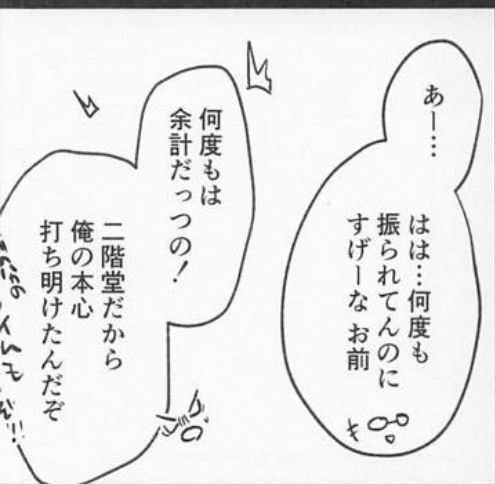 あー…
はは…何度も
振られてんのに
すげーな お前
何度もは
余計だっつの!
二階堂だから
俺の本心
打ち明けたんだぞ